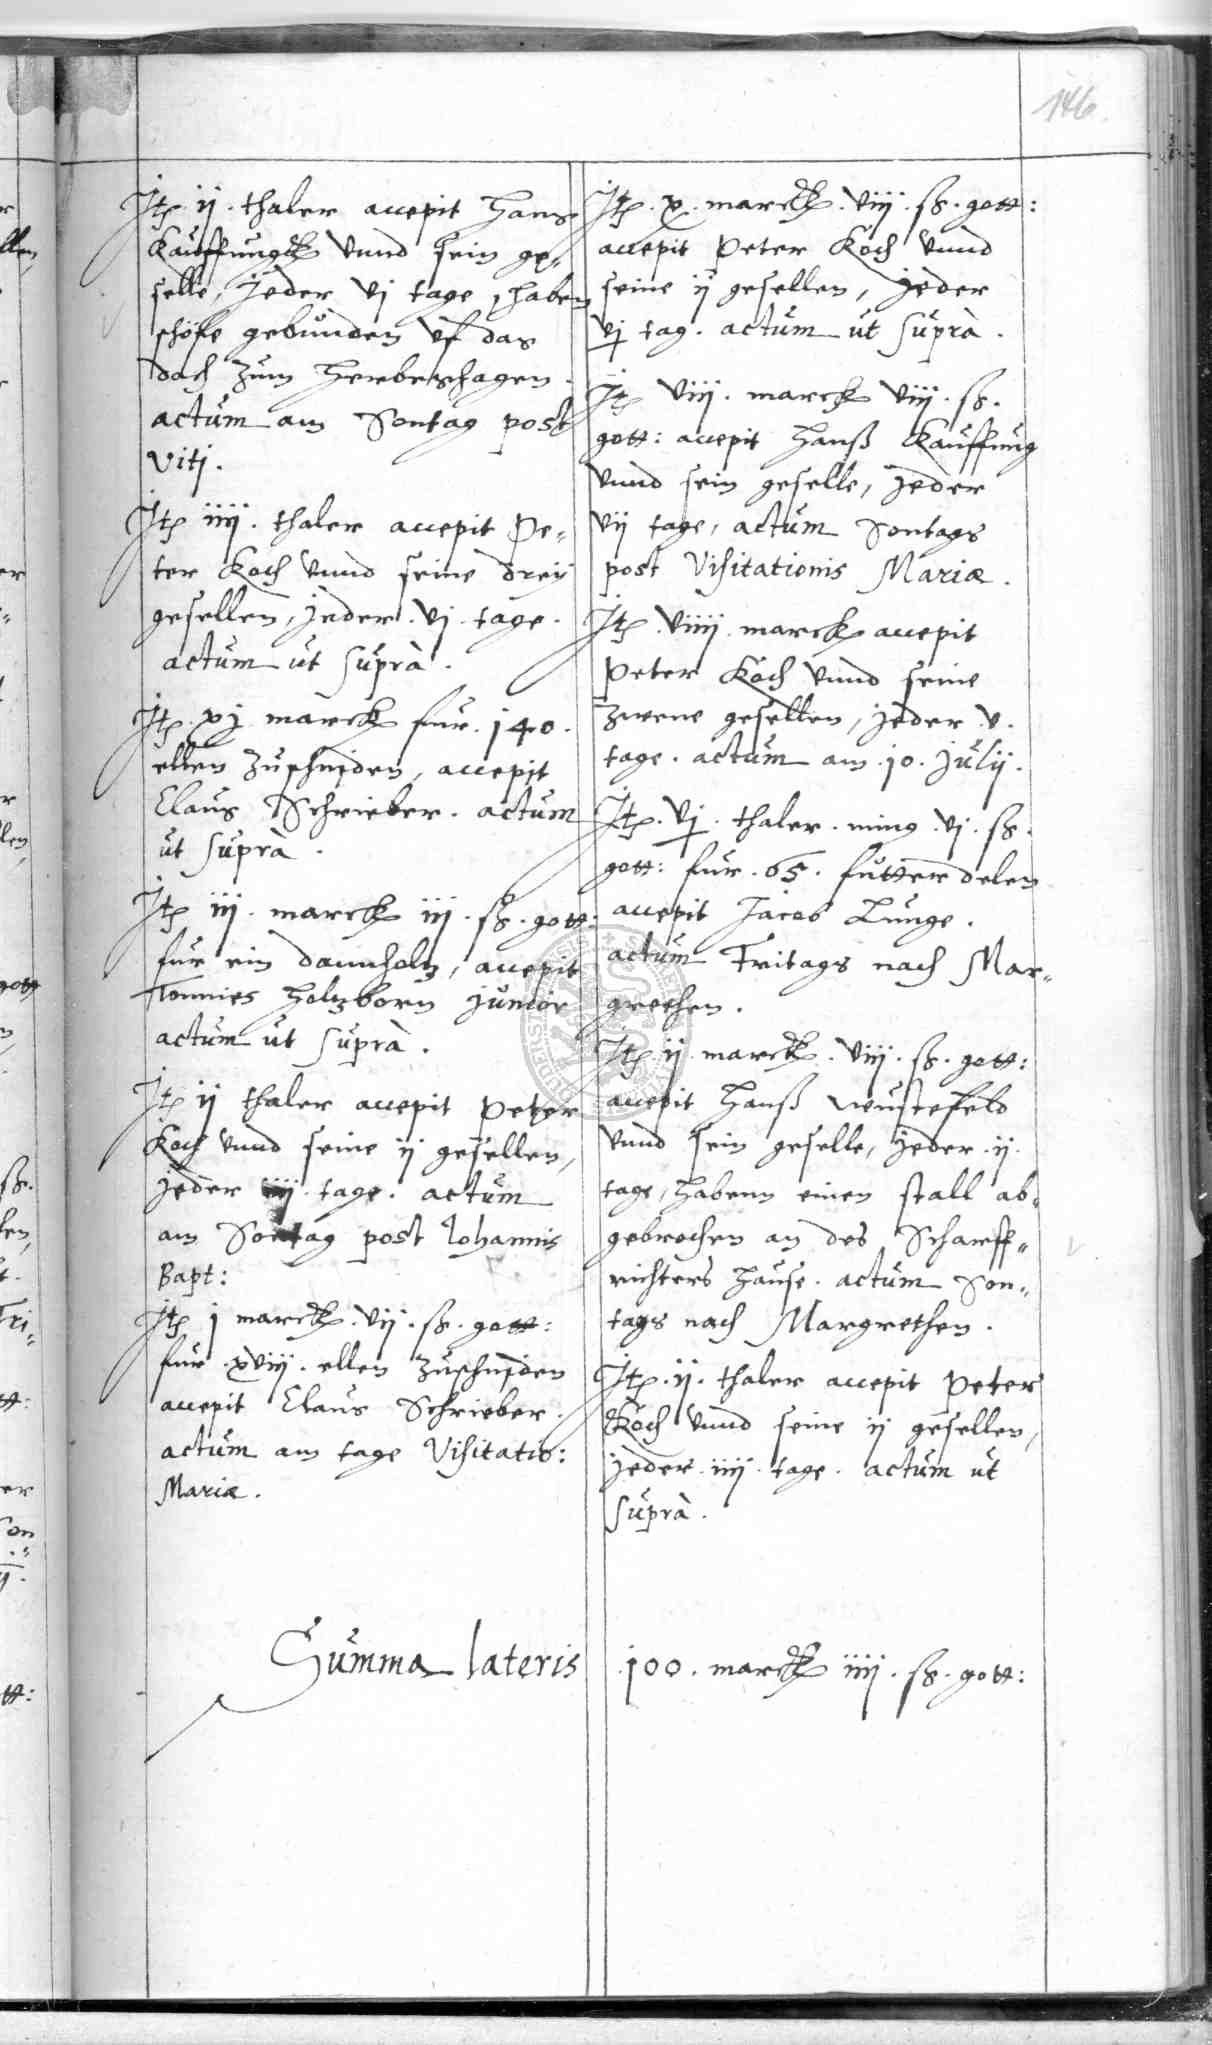 146.
Jtem ij thaler accepit Hans
Kauffungk vnnd sein ge„
selle, jeder vj tage, haben
schöfe gebunden vf das
dach zum Herbershagen.
actum am Sontag post
Viti.
Jtem iiij. thaler accepit Pe„
ter Koch vnnd seine dreij
gesellen, jeder. vj. tage.
actum ut suprà.
Jtem. xj marck fur. 140.
ellen zuschniden, accepit
Claus Schrieber. actum
ut suprà.
Jtem iij. marck iij. ß. gott:
fur ein dannholtz, accepit
Tonnies Holtzborn junior
actum ut suprà.
Jtem ij thaler accepit Peter
Koch vnnd seine ij gesellen,
jeder iiij. tage. actum
am Sontag post Iohannis
Bapt:
Jtem j marck. vij. ß. gott:
fur. xviij. ellen zuschniden
accepit Claus Schrieber.
actum am tage Visitatio:
Mariæ.
Jtem. x. marck. viij. ß. gott:
accepit Peter Koch vnnd
seine ij gesellen, jeder
vj tag. actum ut suprà.
Jtem viij. marck viij. ß.
gott: accepit Hanß Kauffung
vnnd sein geselle, jeder
vij tage, actum Sontags
post Visitationis Mariæ.
Jtem. viiij. marck accepit
Peter Koch vnnd seine
zwene gesellen, jeder. v.
tage. actum am. 10. Julij.
Jtem. vj. thaler. ming. vj. ß.
gott: fur. 65. futterdelen
accepit Jacob Lunge.
actum Fritags nach Mar„
grethen.
Jtem ij marck. viij. ß. gott:
accepit Hanß Wustefeld
vnnd sein geselle, jeder. ij.
tage, habenn einen stall ab„
gebrochen an des Scharff„
richters hause. actum Son„
tags nach Margrethen.
Jtem. ij. thaler accepit Peter
Koch vnnd seine ij gesellen,
jeder. iiij. tage. actum ut
suprà.
Summa lateris 100. marck iiij. ß. gott: